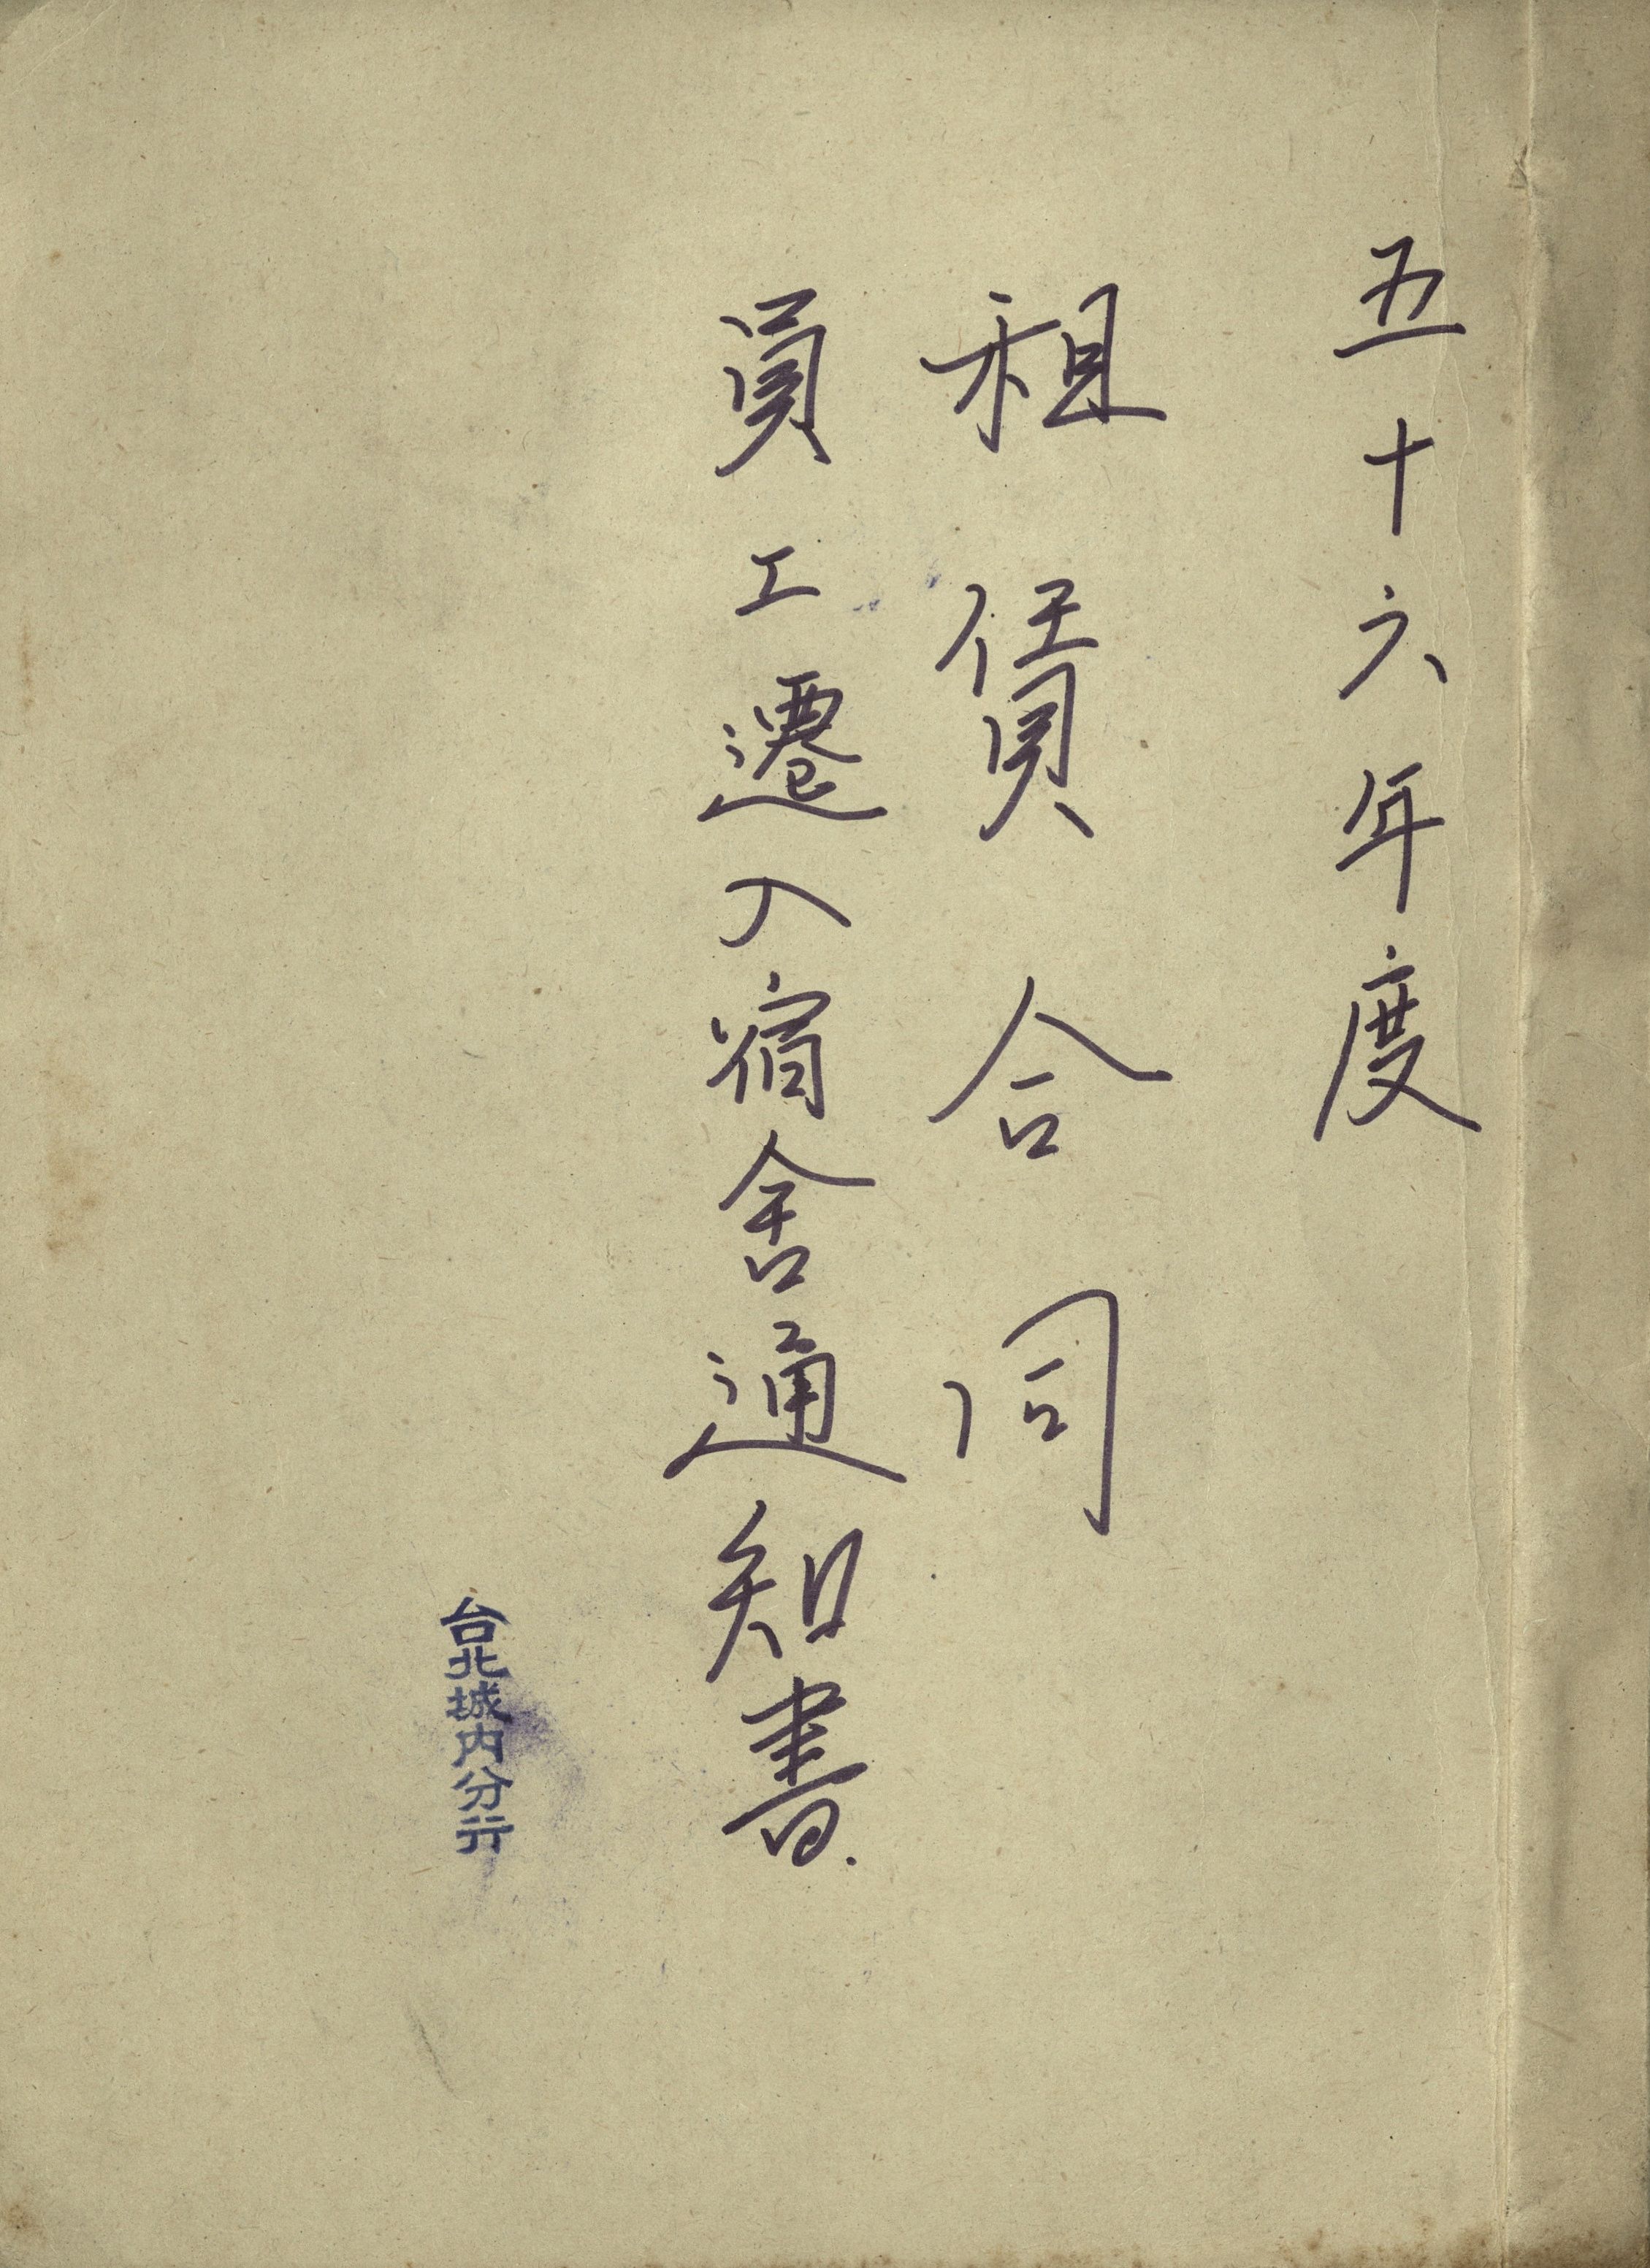 五十六年度
租賃合同
員工遷入宿舍通知書.
台北城內分行